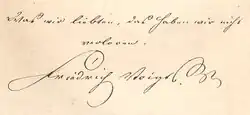 Was wir liebten, das haben wir nicht
verloren.
Friedrich Voigts.